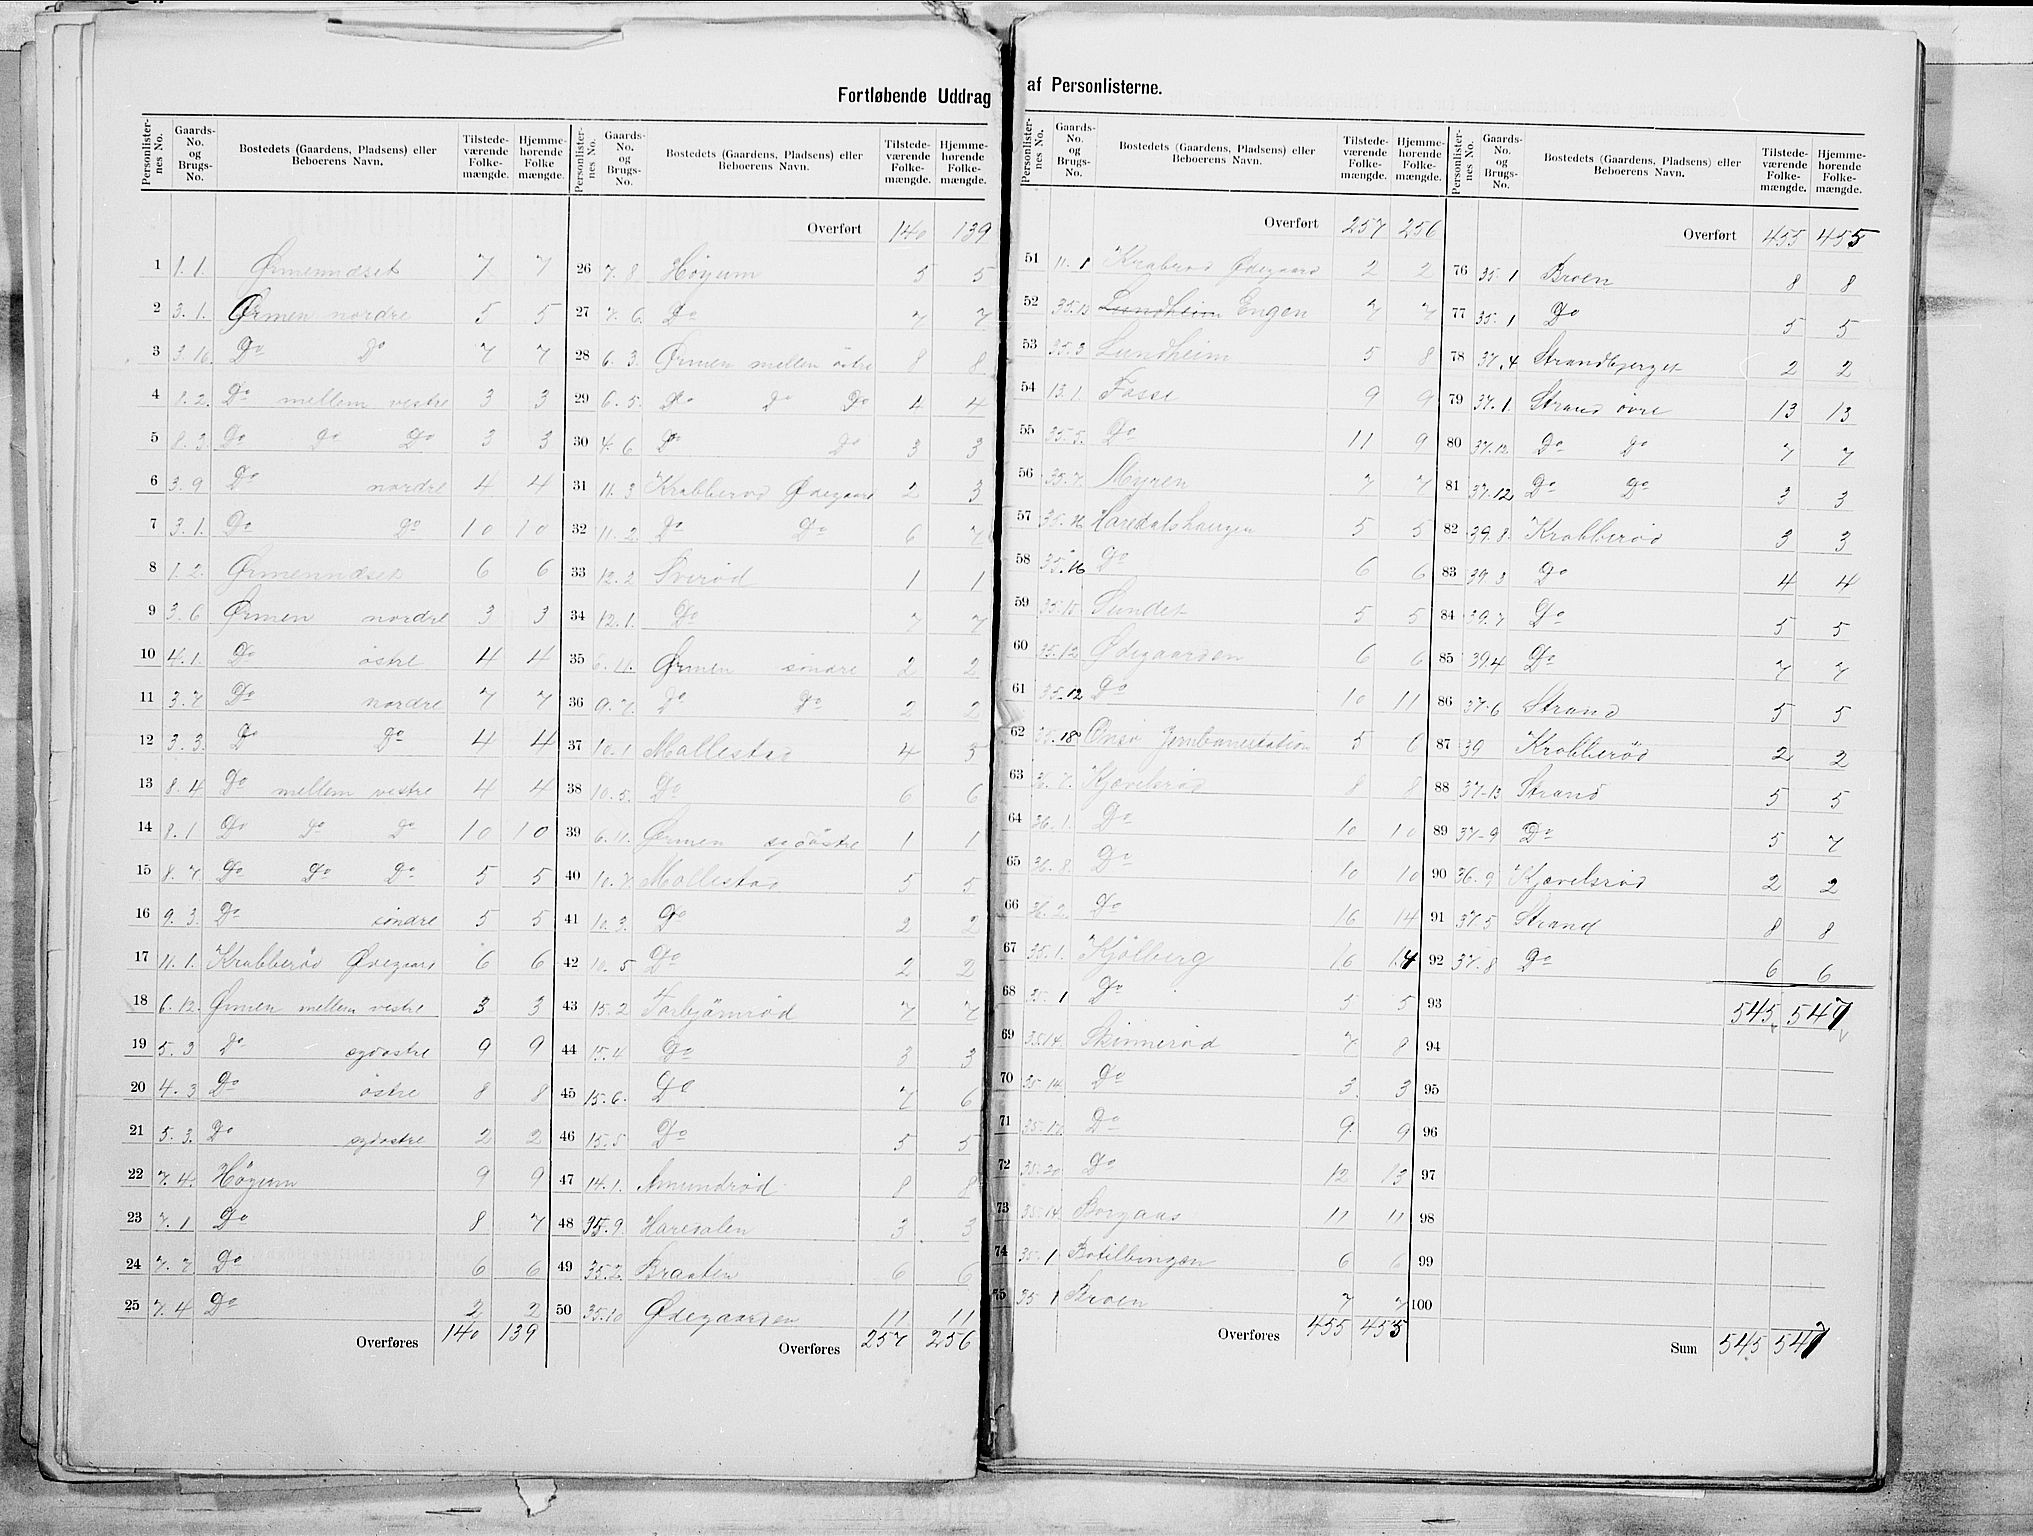 Fortløbende Uddrag af Personlisterne.
Personlister-nes No. Gaards-No. og Brugs-No. Bostedets (Gaardens, Pladsens) eller Beboerens Navn. Tilstede-værende Folke-mængde. Hjemme-hørende Folke mængde.
1 1.1. Ørmenndset 7 7
2 3.1. Ørmen nordre 5 5
3 3.16. Do Do 7 7
4 8.2. Do mellem vestre 3 3
5 8.3. Do Do Do 3 3
6 3.9 Do nordre 4 4
7 3.1. Do Do 10 10
8 1.2. Ørmenndset 6 6
9 3.6 Ørmen nordre 3 3
10 4.1. Do östre 4 4
11 3.7 Do nordre 7 7
12 3.3. Do Do 4 4
13 8.4 Do mellem vestre 4 4
14 8.1 Do Do Do 10 10
15 8.7 Do Do Do 5 5
16 9.3. Do söndre 5 5
17 11.1. Krabberöd Ødegaard 6 6
18 6.12. Ørmen mellem vestre 3 3
19 5.3 Do sydostre 9 9
20 4.3 Do östre 8 8
21 5.3. Do sydostre 2 2
22 7.4. Höyum 9 9
23 7.1 Do 8 7
24 7.7 Do 6 6
25 7.4 Do 2 2
Overføres 140 139
Personlister-nes No. Gaards-No. og Brugs-No. Bostedets (Gaardens, Pladsens) eller Beboerens Navn. Tilstede-værende Folke-mængde. Hjemme-hørende Folke-mængde.
Overført 140 139
26 7.8 Höyum 5 5
27 7.6. Do 7 7
28 6.3. Ørmen mellem östre 8 8
29 6.5. Do Do Do 4 4
30 4.6 Do Do 3 3
31 11.3 Krabberöd Ødegaard 2 3
32 11.2. Do Do 6 7
33 12.2 Sveröd 1 1
34 12.1. Do 7 7
35 6.11. Ørmen söndre 2 2
36 9.7. Do Do 2 2
37 10.1 Mallestad 4 5
38 10.5. Do 6 6
39 6.11. Ørmen sydöstre 1 1
40 10.7 Mallestad 5 5
41 10.3. Do 2 2
42 10.5 Do 2 2
43 15.2 Torbjörnröd 7 7
44 15.4 Do 3 3
45 15.6. Do 7 6
46 15.5 Do 5 5
47 14.1. Amundröd 8 8
48 35.9 Haredalen 3 3
49 35.2. Braaten 6 6
50 35.10 Ødegaarden 11 11
Overføres 257 256
Personlister-nes No. Gaards-No. og Brugs-No. Bostedets (Gaardens, Pladsens) eller Beboerens Navn. Tilstede-værende Folke-mængde. Hjemme-hørende Folke-mængde.
Overført 257 256
51 11.1 Kraberöd Ødegaard 2 2
52 35.13 Lundheim Engen 7 7
53 35.3 Lundheim 5 8
54 13.1. Fosse 9 9
55 35.5. Do 11 9
56 35.7. Myren 7 7
57 35.16 Haredalshaugen 5 5
58 35.16 Do 6 6
59 35.15 Sundet 5 5
60 35.12 Ødegaarden 6 6
61 35.12 Do 10 11
62 35.18 Onsö Jernbanestation 5 6
63 36.7. Kjævelsröd 8 8
64 36.1. Do 10 10
65 36.8. Do 10 10
66 36.2. Do 16 14
67 35.1. Kjölberg 16 14
68 35.1 Do 5 5
69 35.14. Skinneröd 7 8
70 35.14 Do 3 3
71 Do 9 9
72 35.20 Do 12 13
73 35.14 Borgaas 11 11
74 35.1 6 6
75 35.1 Broen 7 7
Overføres 455 455
Personlister-nes No. Gaards-No. og Brugs-No. Bostedets (Gaardens, Pladsens) eller Beboerens Navn. Tilstede-værende Folke-mængde. Hjemme-hørende Folke-mængde.
Overført 455 455
76 35.1 Broen 8 8
77 35.1 Do 5 5
78 37.4 Strandbjerget 2 2
79 37.1. Strand övre 13 13
80 37.12. Do Do 7 7
81 37.12 Do Do 3 3
82 39.8. Krabberöd 3 3
83 39.3 Do 4 4
84 39.7 Do 5 5
85 39.4 Do 7 7
86 37.6 Strand 5 5
87 39 Krabberöd 2 2
88 37-13 Strand 5 5
89 37-9 Do 5 7
90 36.9 Kjævelsröd 2 2
91 37.5 Strand 8 8
92 37.8 Do 6 6
93 545 547
94
95
96
97
98
99
100
Sum 545 547